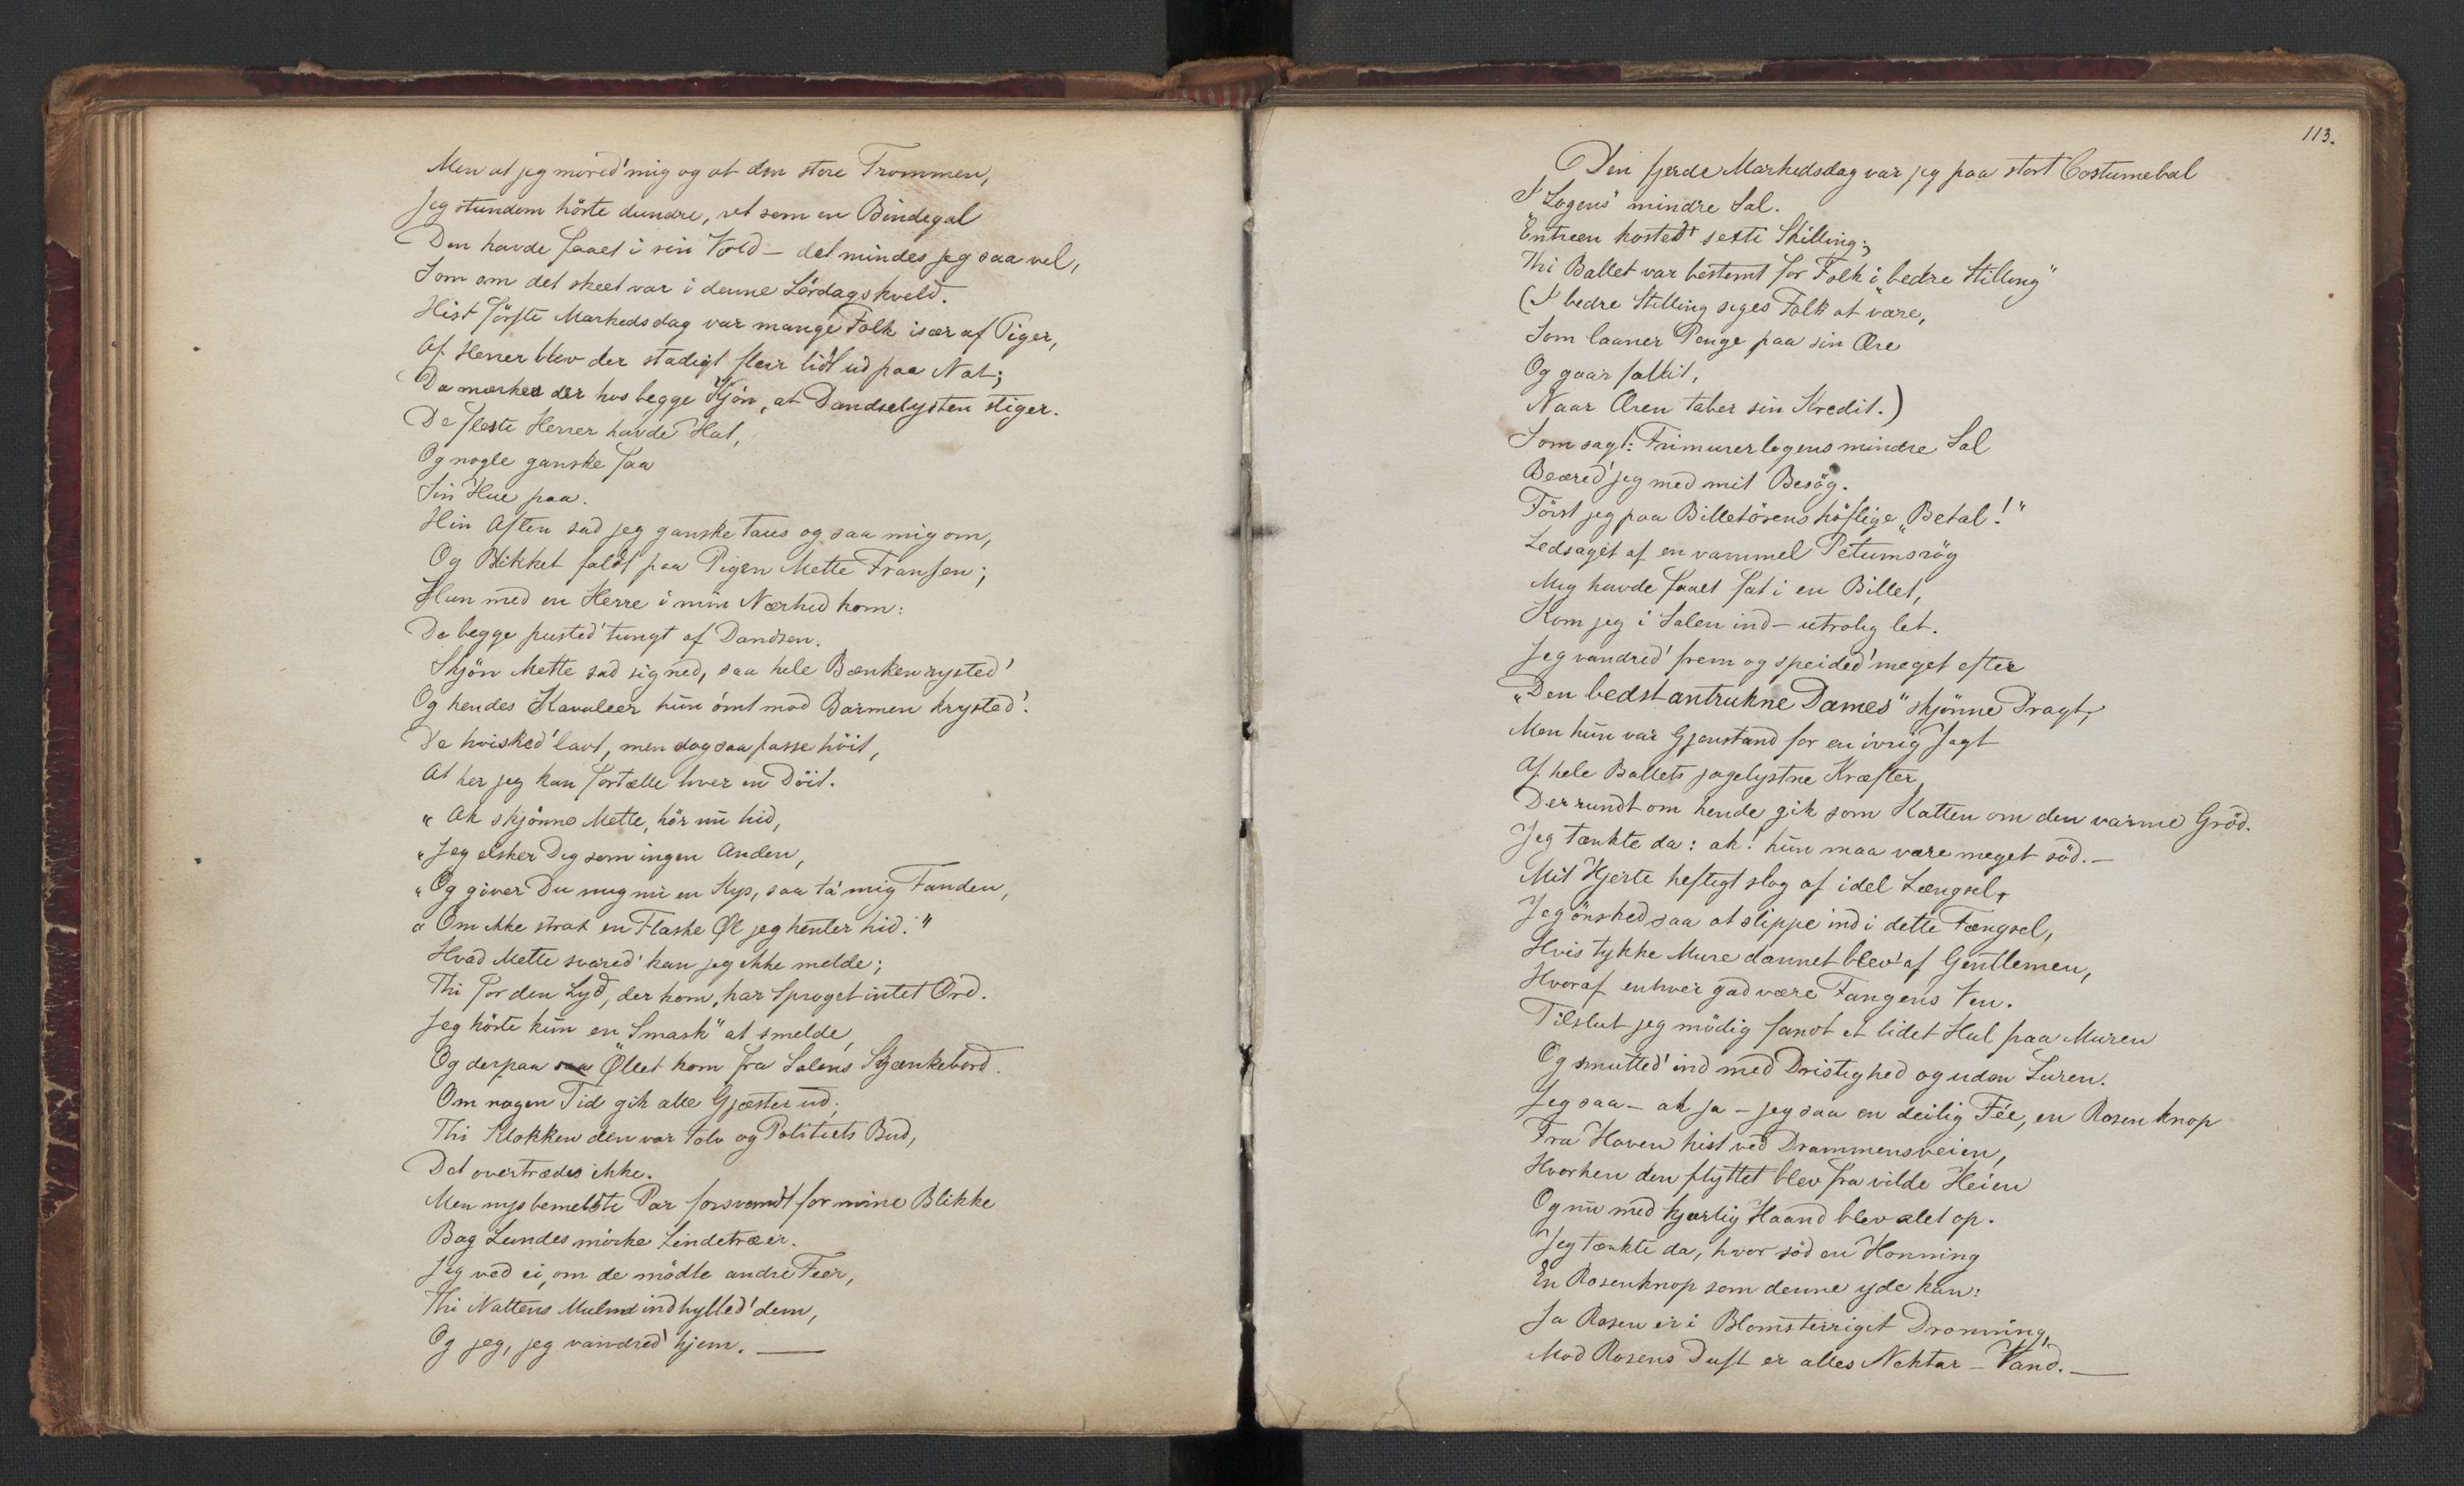 Men at jeg mored' mig og at den store Trommen,
Jeg stundom hörte dundre, ret som en Bindegal
Den havde faaet i sin Vold – det mindes jeg saa vel,
Som om det skeet var i denne Lördagskveld.
Hist förste Markedsdag var mange Folk især af Piger,
Af Herrer blev der stadigt fleir lidt ud paa Nat;
Da mærkes der hos begge Kjön, at Dandselysten stiger.
De fleste Herrer havde Hat,
Og nogle ganske faa
Sin Hue paa.
Hin Aften sad jeg ganske taus og saa mig om,
Og Blikket faldt paa Pigen Mette Fransen;
Hun med en Herre i min Nærhed kom:
De begge pusted' tungt af Dandsen.
Skjön Mette sad sig ned, saa hele Bænken rysted'
Og hendes Kavaleer hun ömt mod Barmen krysted'.
De hvisked' lavt, men dog saa passe höit,
At her jeg kan fortælle hver en Döit.
"Ak skjönne Mette, hör nu hid,
"Jeg elsker Dig som ingen Anden,
"Og giver Du mig nu en Kys, saa ta' mig Fanden,
"Om ikke strax en Flaske Øl jeg henter hid."
Hvad Mette svared' kan jeg ikke melde;
Thi for den Lyd, der kom, har Sproget intet Ord.
Jeg hörte kun en "Smask" at smelde,
Og derpaa saa Øllet kom fra Salens Skjænkebord.
Om nogen Tid gik alle Gjæster ud;
Thi Klokken den var tolv og Politiets Bud,
Det overtrædes ikke.
Men nys bemeldte Par forsvandt for mine Blikke
Bag Lundes mörke Lindetræer.
Jeg ved ei, om de mödte andre Feer,
Thi Nattens Mulm indhylled' dem,
Og jeg, jeg vandred' hjem. —
113.
Den fjerde Markedsdag var jeg paa stort Costumebal
I "Logens" mindre Sal.
Entreen kosted' sexti Skilling;
Thi Ballet var bestemt for Folk i "bedre Stilling"
(I bedre Stilling siges Folk at være,
Som laaner Penge paa sin Ære
Og gaar fallit,
Naar Æren taber sin Kredit.)
Som sagt: Frimurerlogens mindre Sal
Beæred' jeg med mit Besög.
Först jeg paa Billetörens höflige "Betal!"
Ledsaget af en vammel Petumsrög
Mig havde faaet fat i en Billet,
Kom jeg i Salen ind – utrolig let.
Jeg vandred' frem og speided' meget efter
"Den bedst antrukne Dames" skjönne Dragt,
Men hun var Gjenstand for en ivrig Jagt
Af hele Ballets jagelystne Kræfter,
Der rundt om hende gik som Katten om den varme Gröd.
Jeg tænkte da: ak! hun maa være meget söd. –
Mit Hjerte heftigt slog af idel Længsel,
Jeg önsked saa at slippe ind i dette Fængsel,
Hvis tykke Mure dannet blev af Gentlemen,
Hvoraf enhver gad være Fangens Ven.
Tilslut jeg mödig fandt et lidet Hul paa Muren
Og smutted' ind med Dristighed og uden Luren.
Jeg saa – ak ja – jeg saa en deilig Fée, en Rosenknop
Fra Haven hist ved Drammensveien,
Hvorhen den flyttet blev fra vilde Heien
Og nu med kjærlig Haand blev alet op.
Jeg tænkte da, hvor söd en Honning
En Rosenknop som denne yde kan:
Ja Rosen er i Blomsterriget Dronning,
Mod Rosens Duft er alles Nektar – Vand. —